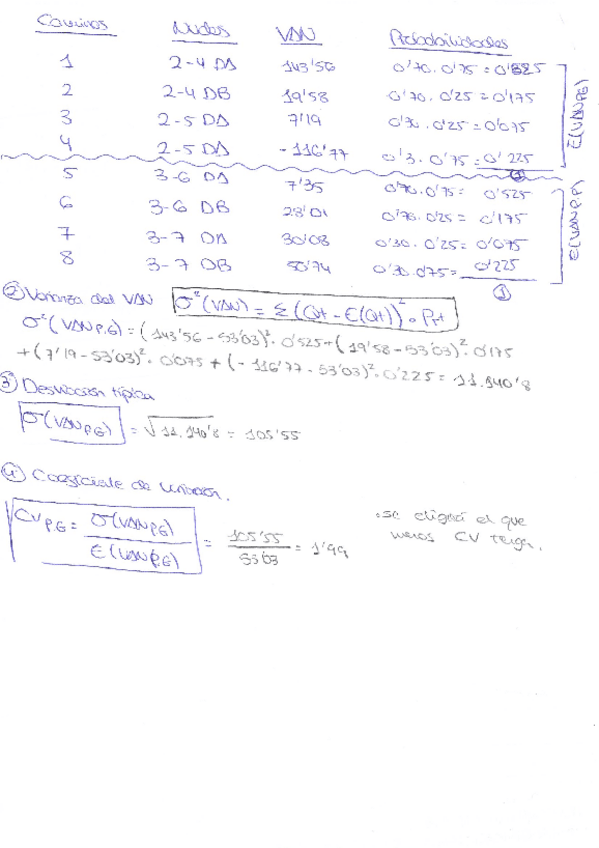 Caminos Nudos VAN Probabilidades
1 2-4 DA 143'56 0'70 . 0'75 = 0'525
2 2-4 DB 19'58 0'70 . 0'25 = 0'175
3 2-5 DA 7'19 0'30 . 0'25 = 0'075
4 2-5 DA -116'77 0'3 . 0'75 = 0'225
E(VAN PG)
1
5 3-6 DA 7'35 0'70 . 0'75 = 0'525
6 3-6 DB 28'01 0'70 . 0'25 = 0'175
7 3-7 DA 30'08 0'30 . 0'25 = 0'075
8 3-7 DB 50'74 0'30 . 0'75 = 0'225
E(VAN P.P)
1
② Varianza del VAN σ²(VAN) = Σ (Qt - E(Qt))² • Prt
σ²(VAN P.G) = (143'56 - 53'03)² . 0'525 + (19'58 - 53'03)² . 0'175
+ (7'19 - 53'03)² . 0'075 + (-116'77 - 53'03)² . 0'225 = 11.140'8
③ Desviación típica
σ(VAN P.G) = √11.140'8 = 105'55
④ Coeficiente de variación.
CV P.G = σ(VAN P.G) / E(VAN P.G) = 105'55 / 53'03 = 1'99
• se eligirá el que
menos CV tenga.